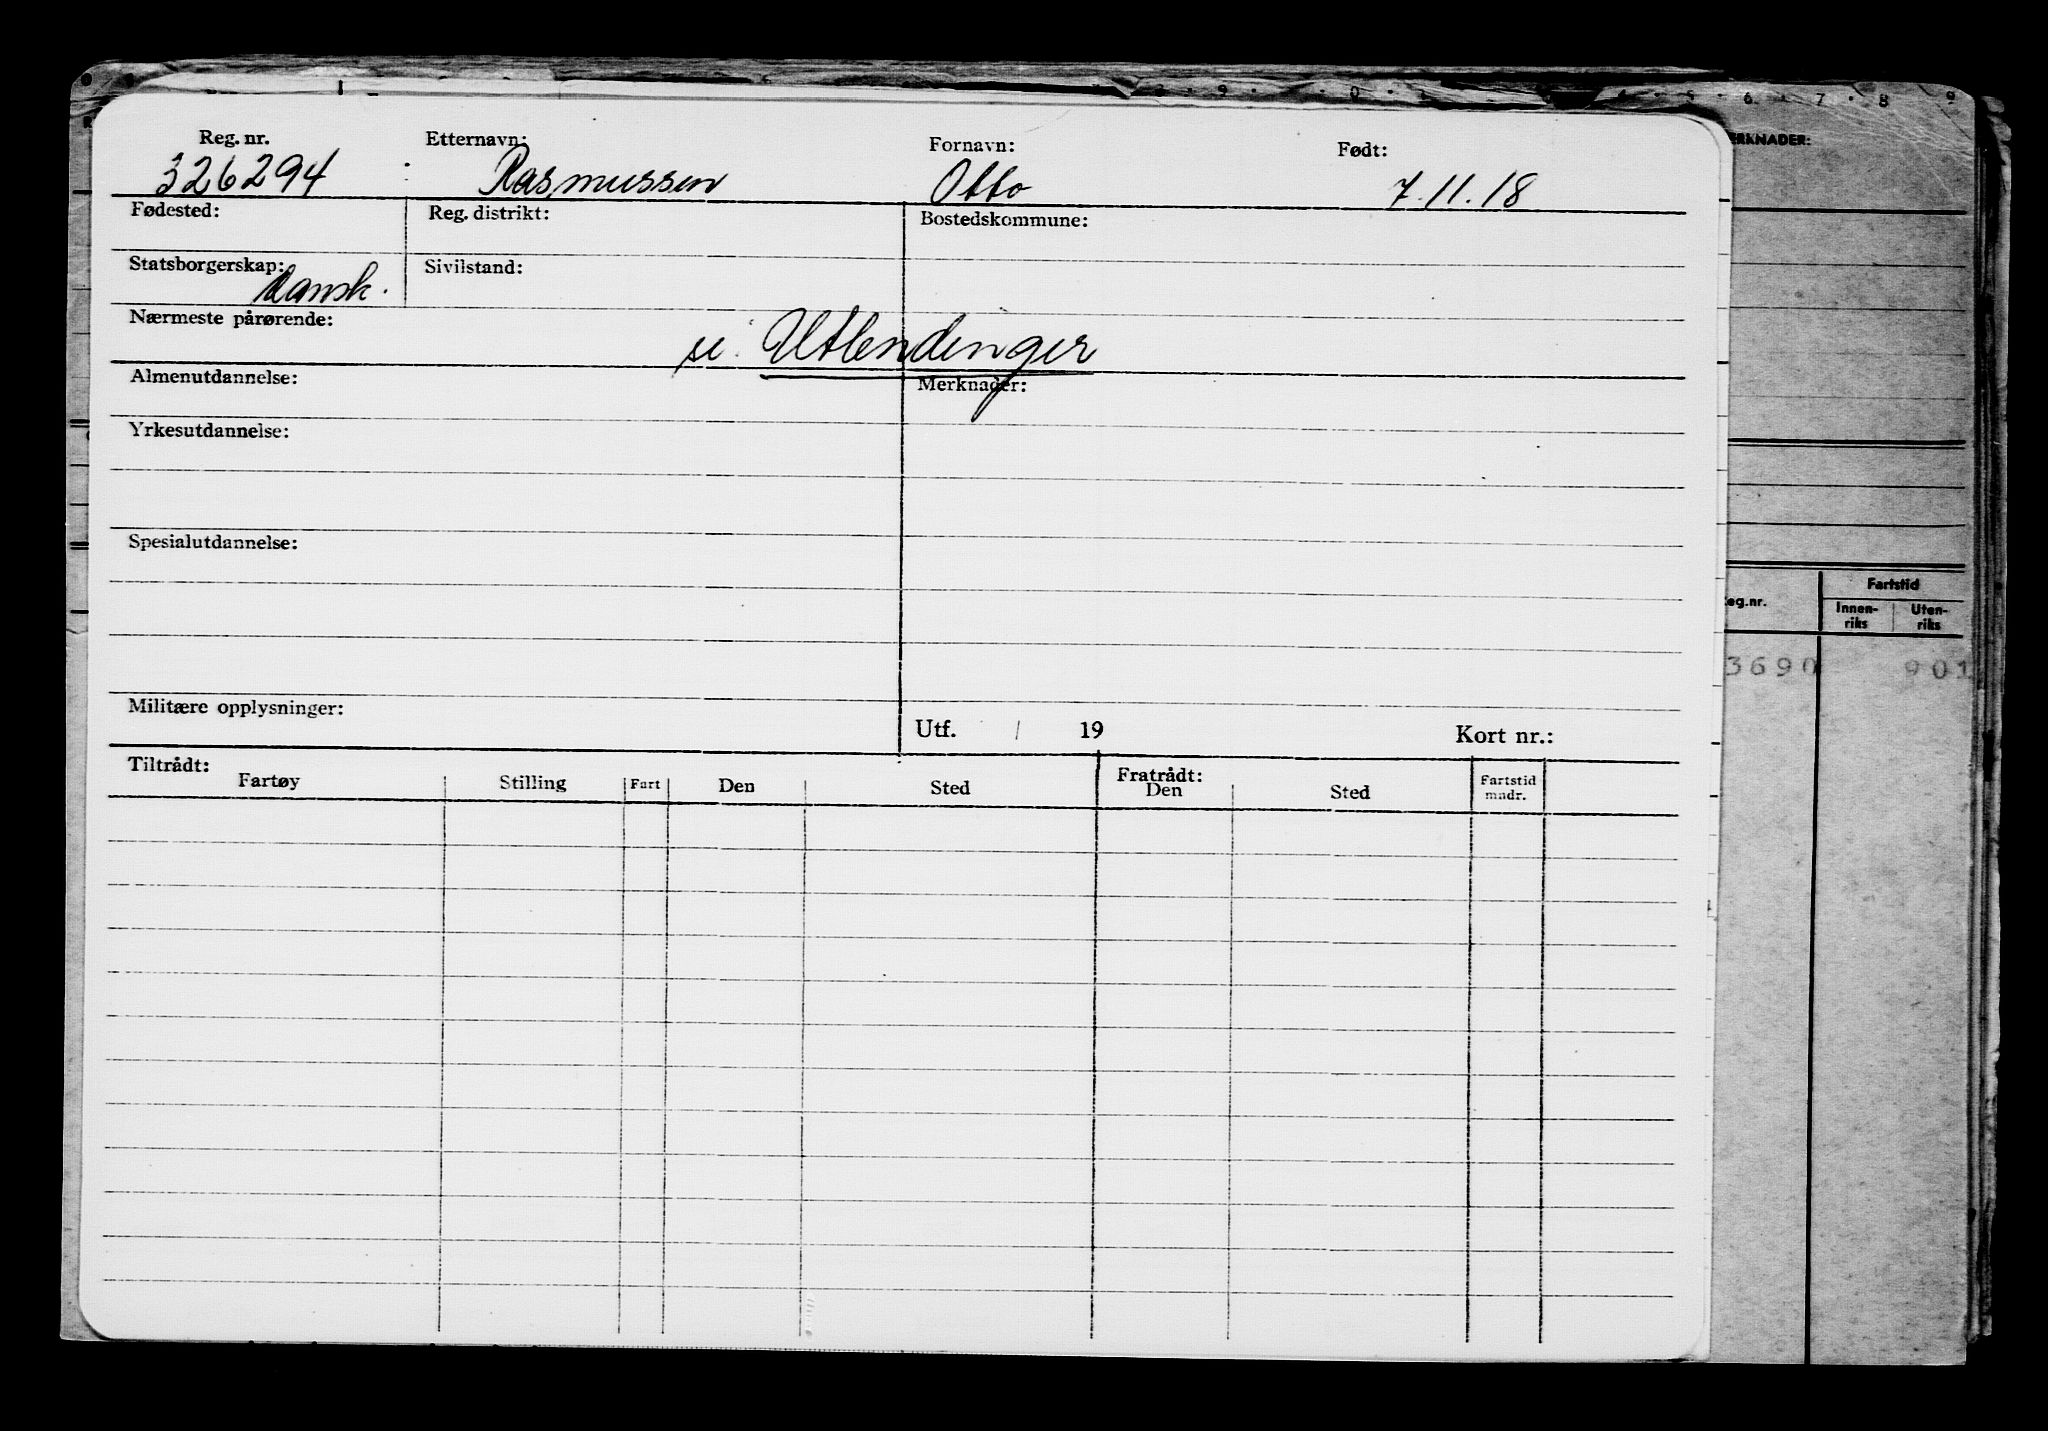 Reg. nr. Etternavn: Fornavn: Født:
326294 Rasmussen Otto 7.11.18
Fødested: Reg. distrikt: Bostedskommune:
Statsborgerskap: Sivilstand:
Dansk.
Nærmeste pårørende:
se Utlendinger
Almenutdannelse: Merknader:
Yrkesutdannelse:
Spesialutdannelse:
Militære opplysninger:
Utf. / 19 Kort nr.:
Tiltrådt: Fratrådt:
Fartøy Stilling Fart Den Sted Den Sted Fartstid
mndr.
ERKNADER:
eg.nr. Fartstid
Innen- Uten-
riks riks
3690 901
6 7 8 9